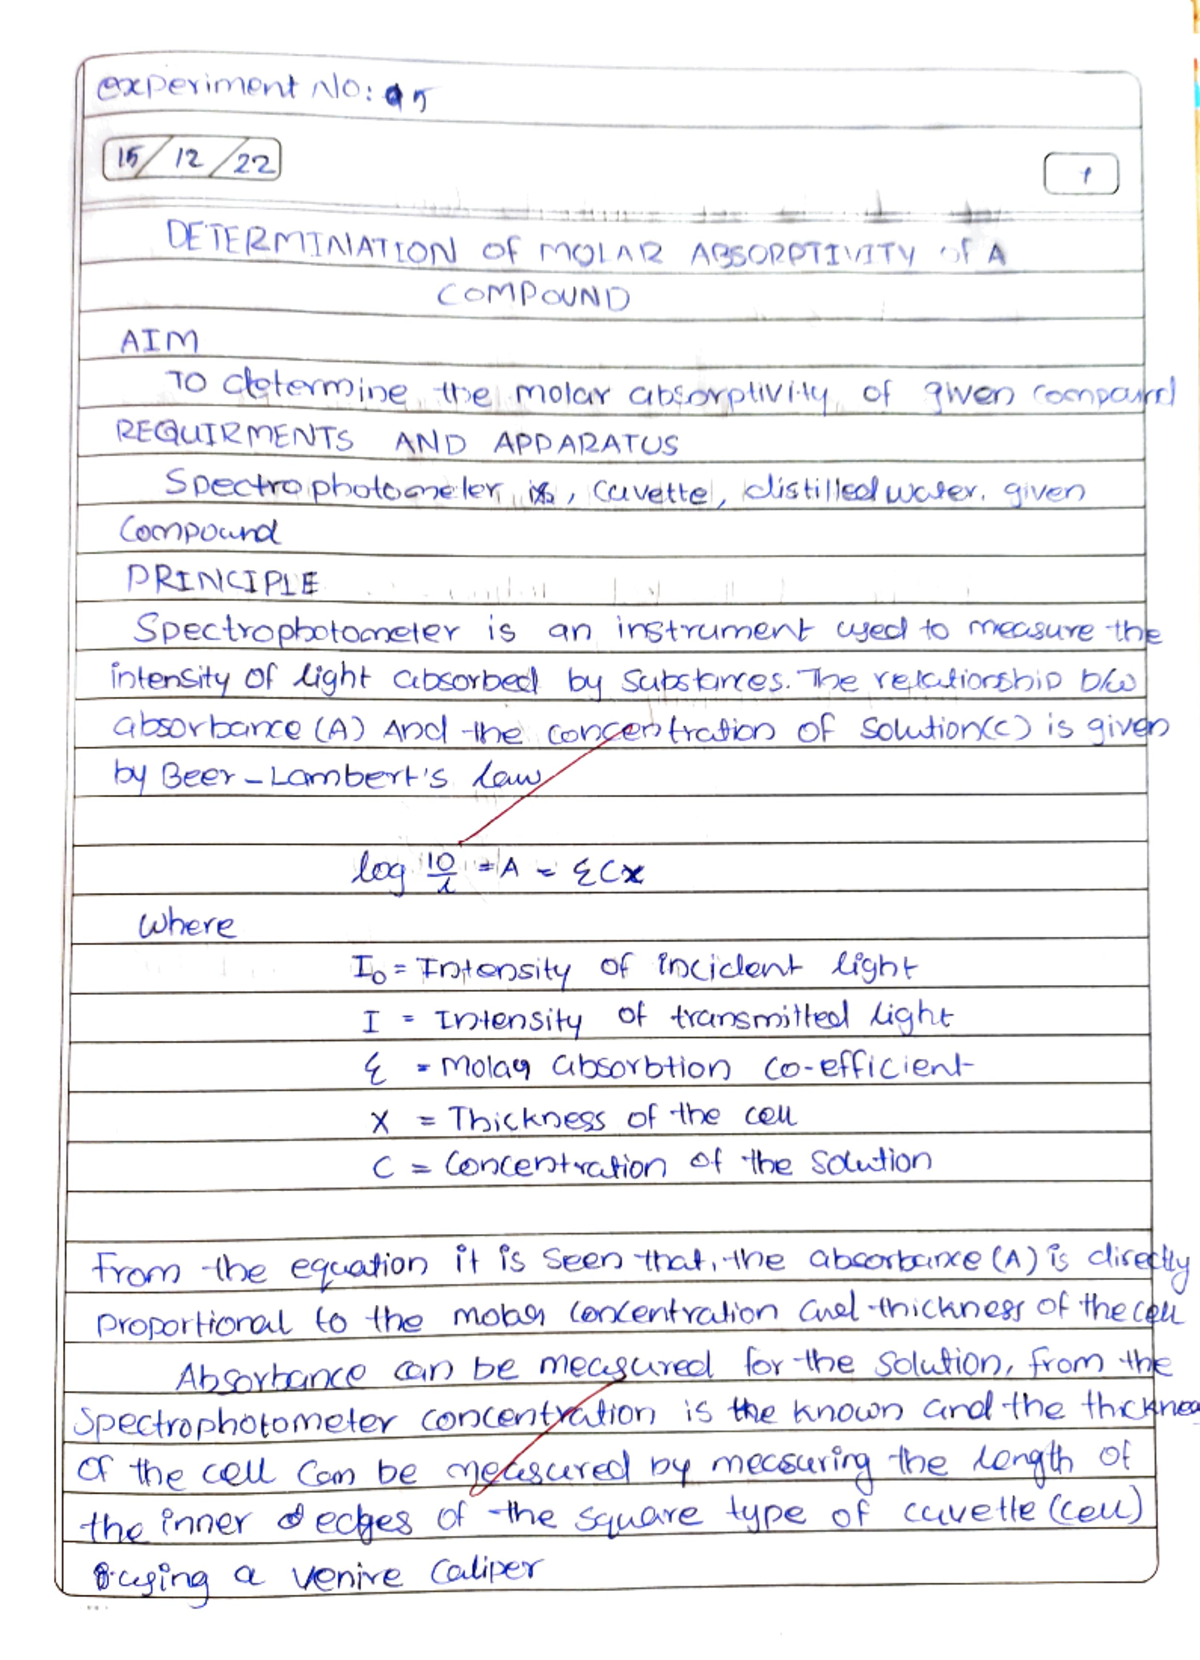 experiment No: 05
15/12/22
1
DETERMINATION OF MOLAR ABSORPTIVITY of A
COMPOUND
AIM
To determine the molar absorptivity of given compound
REQUIRMENTS AND APPARATUS
Spectrophotometer, cuvette, distilled water, given
Compound
PRINCIPLE
Spectrophotometer is an instrument used to measure the
intensity of light absorbed by substances. The relationship b/w
absorbance (A) And the concentration of solution(c) is given
by Beer-Lambert's law
log I0/I = A = ξCx
where
I₀ = Intensity of incident light
I = Intensity of transmitted light
ξ = Molar absorbtion co-efficient
X = Thickness of the cell
C = Concentration of the solution
From the equation it is seen that, the absorbance (A) is directly
proportional to the molar concentration and thickness of the cell
Absorbance can be measured for the solution, from the
Spectrophotometer concentration is the known and the thicknes
of the cell can be measured by measuring the length of
the inner edges of the square type of cuvette (cell)
using a venire caliper